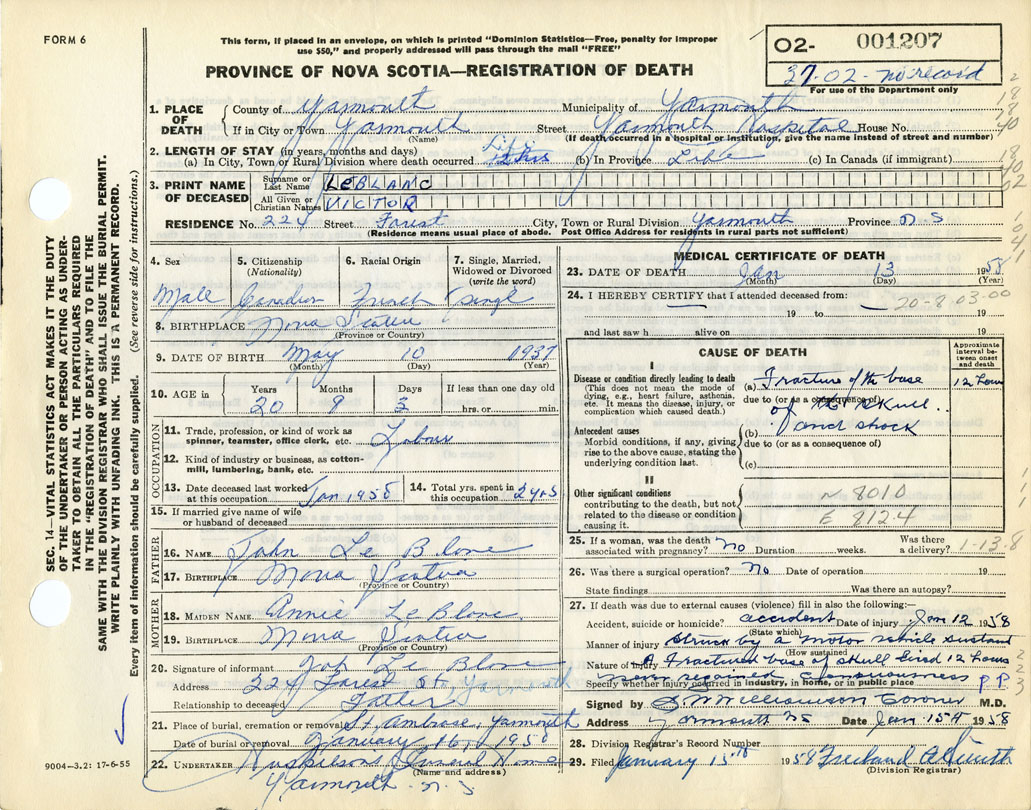 FORM 6
This form, if placed in an envelope, on which is printed "Dominion Statistics—Free, penalty for improper
use $50," and properly addressed will pass through the mail "FREE"
PROVINCE OF NOVA SCOTIA—REGISTRATION OF DEATH
02- 001207
37-02-no record
For use of the Department only
1. PLACE OF DEATH County of Yarmouth Municipality of Yarmouth
If in City or Town Yarmouth Street Yarmouth Hospital House No.
(Name) (If death occurred in a hospital or institution, give the name instead of street and number)
2. LENGTH OF STAY (in years, months and days)
(a) In City, Town or Rural Division where death occurred Life (b) In Province Life (c) In Canada (if immigrant)
3. PRINT NAME OF DECEASED Surname or Last Name LEBLANC
All Given or Christian Names VICTOR
RESIDENCE No. 224 Street Forest City, Town or Rural Division Yarmouth Province N.S
(Residence means usual place of abode. Post Office Address for residents in rural parts not sufficient)
4. Sex 5. Citizenship (Nationality) 6. Racial Origin 7. Single, Married, Widowed or Divorced (write the word)
Male Canadian French Single
8. BIRTHPLACE Nova Scotia
(Province or Country)
9. DATE OF BIRTH May 10 1937
(Month) (Day) (Year)
10. AGE in Years Months Days If less than one day old
20 9 3 hrs. or min.
OCCUPATION
11. Trade, profession, or kind of work as spinner, teamster, office clerk, etc. Labour
12. Kind of industry or business, as cotton-mill, lumbering, bank, etc.
13. Date deceased last worked at this occupation Jan 1958 14. Total yrs. spent in this occupation 2 yrs
15. If married give name of wife or husband of deceased
FATHER
16. NAME John Le Blanc
17. BIRTHPLACE Nova Scotia
(Province or Country)
MOTHER
18. MAIDEN NAME Annie Le Blanc
19. BIRTHPLACE Nova Scotia
(Province or Country)
20. Signature of informant Le Blanc
Address 224 Forest St, Yarmouth
Relationship to deceased Father
21. Place of burial, cremation or removal St. Ambrose, Yarmouth
Date of burial or removal January 16, 1958
22. UNDERTAKER Funeral Home
(Name and address)
Yarmouth - N.S
MEDICAL CERTIFICATE OF DEATH
23. DATE OF DEATH Jan 13 1958
(Month) (Day) (Year)
24. I HEREBY CERTIFY that I attended deceased from:
20-8.03-00
19 to 19
and last saw h alive on 19
CAUSE OF DEATH
Approximate interval between onset and death
I
Disease or condition directly leading to death
(This does not mean the mode of dying, e.g., heart failure, asthenia, etc. It means the disease, injury, or complication which caused death.)
(a) Fracture of the base 12 hours
due to (or as a consequence of)
of the skull..
Antecedent causes
Morbid conditions, if any, giving rise to the above cause, stating the underlying condition last.
(b) and shock
due to (or as a consequence of)
(c)
II
Other significant conditions
contributing to the death, but not related to the disease or condition causing it.
N 8010
E 812.4
25. If a woman, was the death associated with pregnancy? No Duration weeks. Was there a delivery? 1-13-8
26. Was there a surgical operation? No Date of operation 19
State findings Was there an autopsy?
27. If death was due to external causes (violence) fill in also the following:
Accident, suicide or homicide? accident Date of injury Jan 12 1958
(State which)
Manner of injury Struck by a motor vehicle sustained
(How sustained)
Nature of injury Fractured base of skull lived 12 hours
never regained consciousness
Specify whether injury occurred in industry, in home, or in public place P.P.
Signed by Williamson Coroner M.D.
Address Yarmouth NS Date Jan 15th 1958
28. Division Registrar's Record Number
29. Filed January 15th 1958
(Division Registrar)
SEC. 14—VITAL STATISTICS ACT MAKES IT THE DUTY
OF THE UNDERTAKER OR PERSON ACTING AS UNDER-
TAKER TO OBTAIN ALL THE PARTICULARS REQUIRED
IN THE "REGISTRATION OF DEATH" AND TO FILE THE
SAME WITH THE DIVISION REGISTRAR WHO SHALL ISSUE THE BURIAL PERMIT.
WRITE PLAINLY WITH UNFADING INK. THIS IS A PERMANENT RECORD.
Every item of information should be carefully supplied. (See reverse side for instructions.)
9004—3.2: 17-6-55